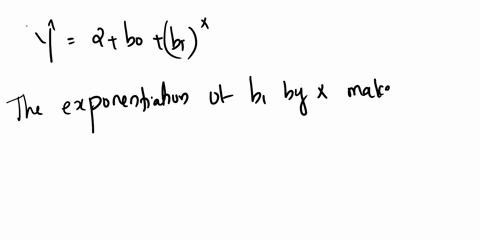 Ŷ = 2 + b₀ + (b₁)ˣ
The exponentiation of b₁ by x make